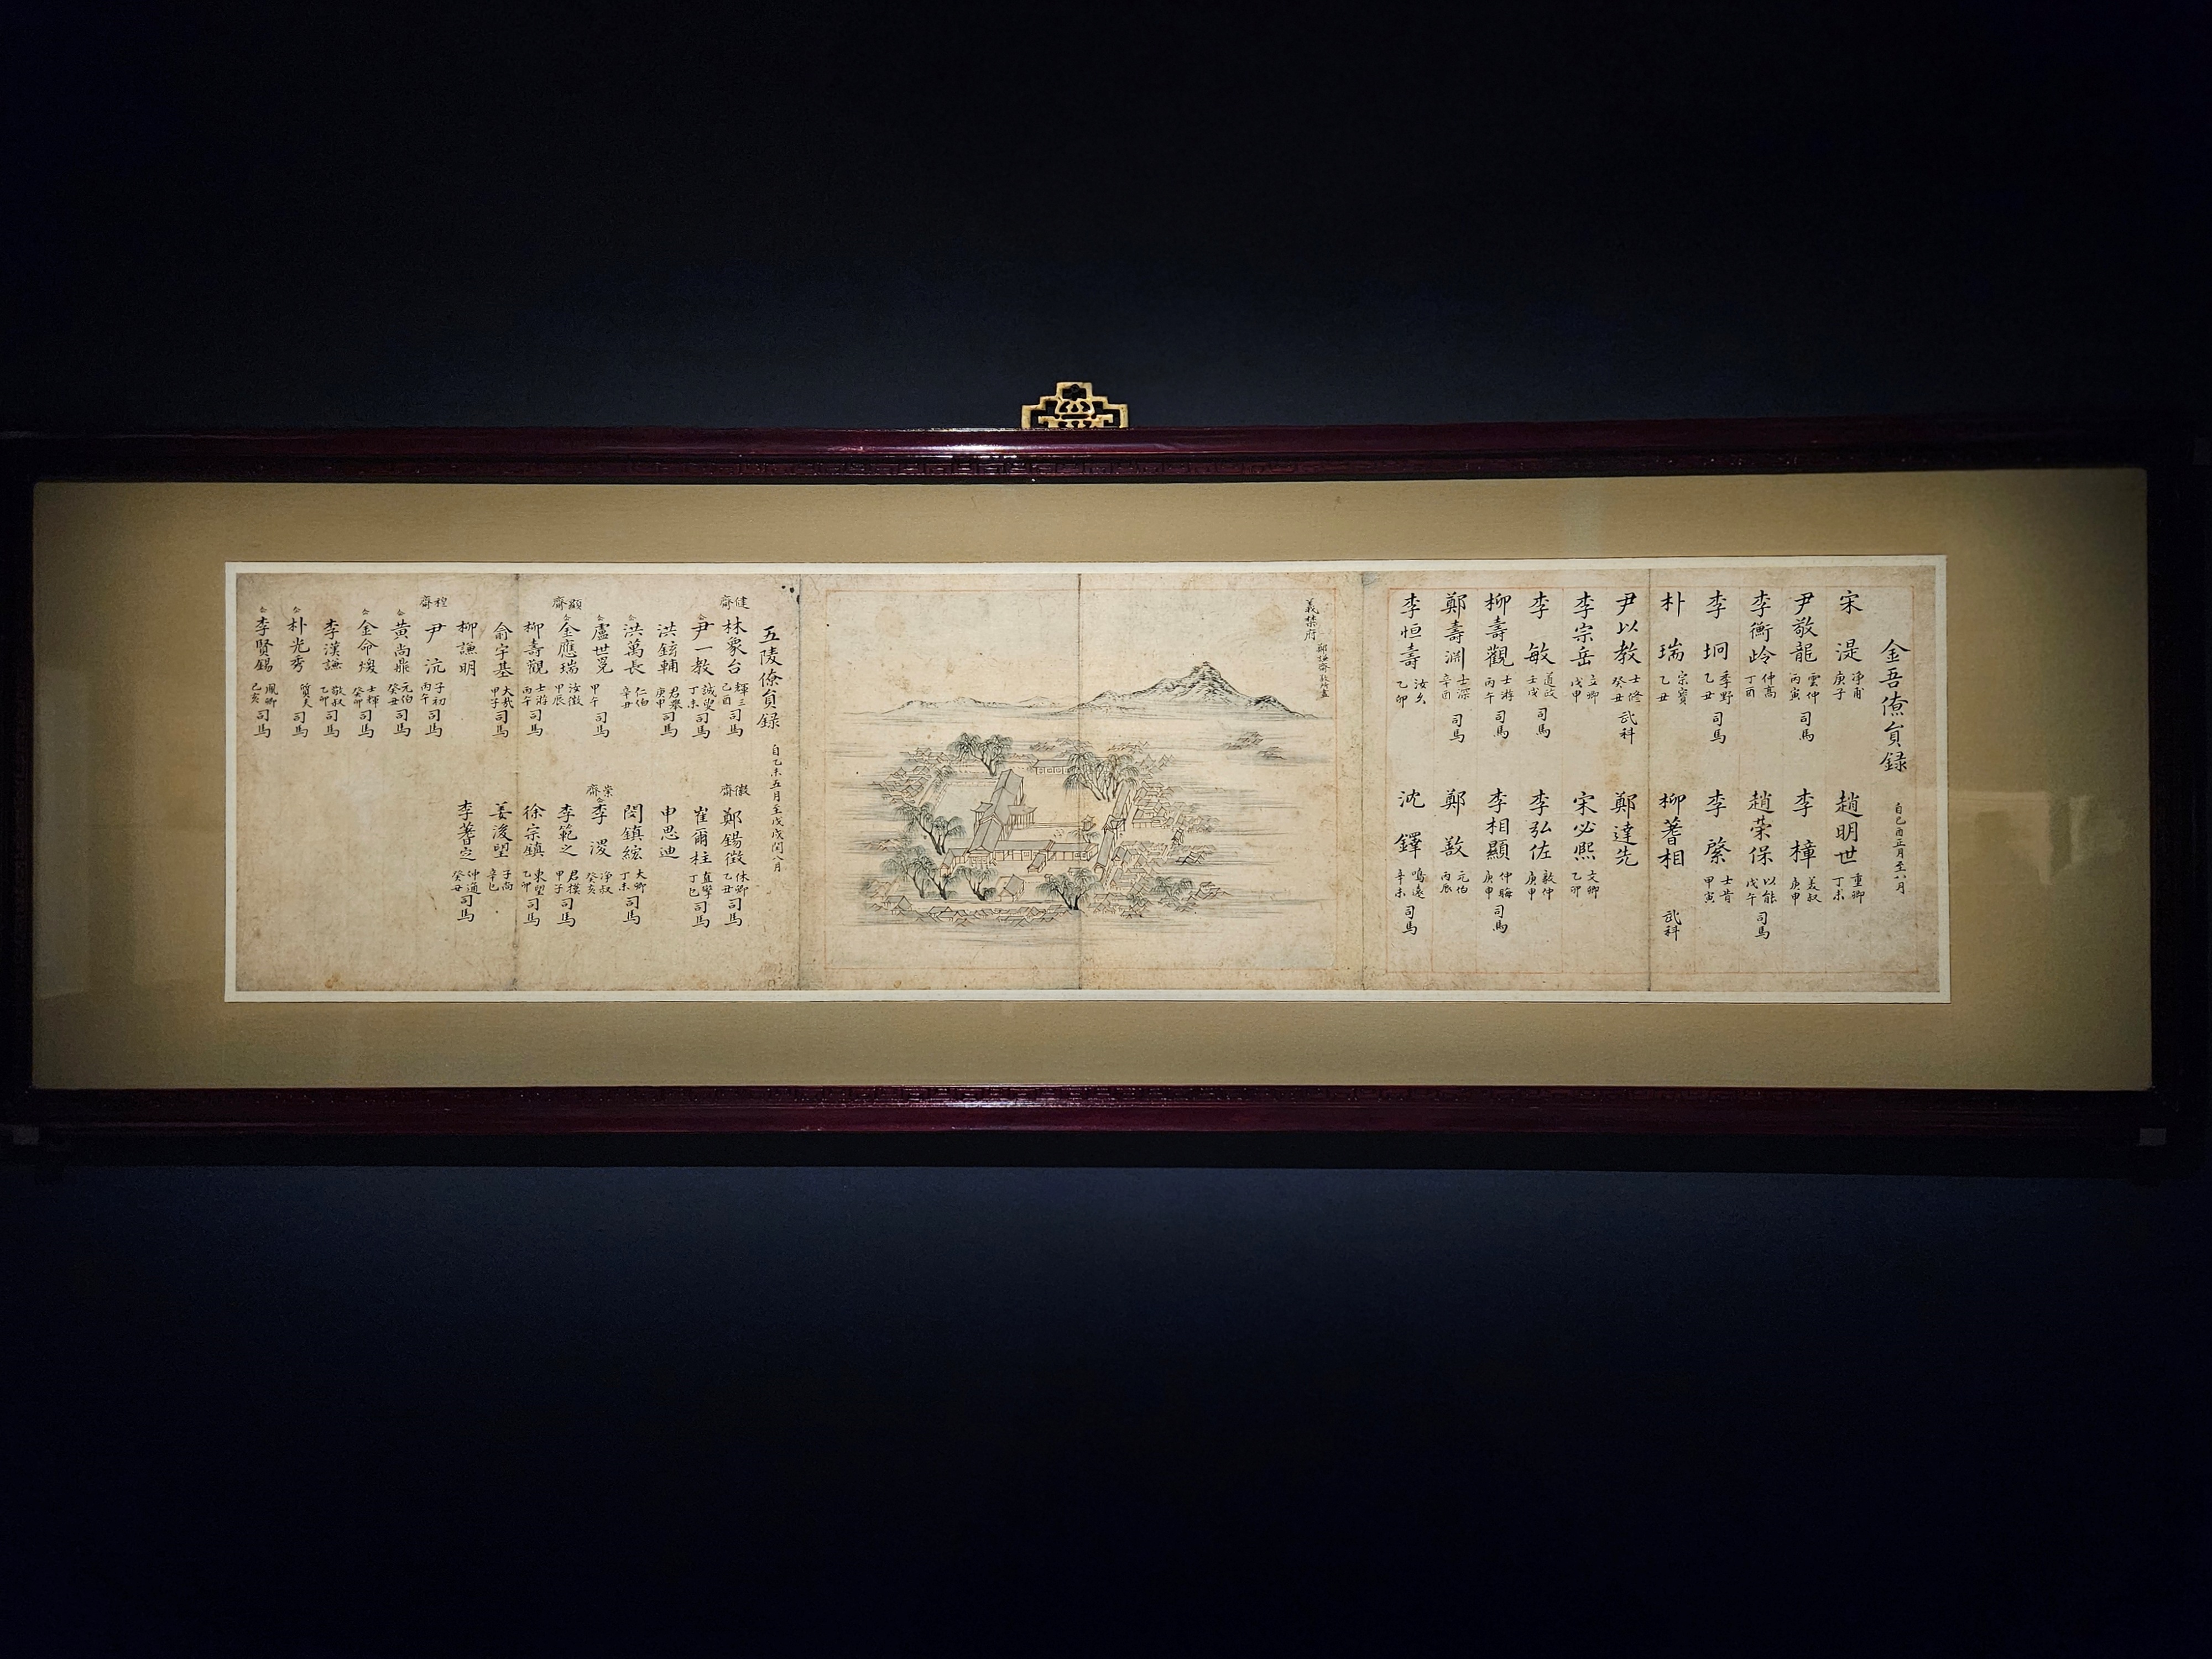 金吾僚員録
自己酉正月至八月
宋湜 淨甫 庚子
趙明世 重卿 丁未
尹敬龍 雲仲 丙寅 司馬
李樟 美叔 庚申
李衡岭 仲高 丁酉
趙荣保 以能 戊午 司馬
李坰 季野 乙丑 司馬
李棨 士肯 甲寅
朴瑞 宗寶 乙丑
柳蓍相 武科
尹以教 士修 癸丑 武科
鄭達先
李宗岳 立卿 戊申
宋必熙 文卿 乙卯
李敏 道政 壬戌 司馬
李弘佐 毅仲 庚申
柳壽觀 士游 丙午 司馬
李相顯 仲晦 庚申 司馬
鄭壽淵 士深 辛酉 司馬
鄭敾 元伯 丙辰
李恒壽 汝久 乙卯
沈鐸 鳴遠 辛未 司馬
義禁府
鄭謙齋敾所畫
五陵僚員録
自乙未五月至戊戌閏八月
健齊
林象台 輝三 己酉 司馬
徽齊
鄭錫徵 休卿 乙丑 司馬
尹一教 誠叟 丁未 司馬
崔爾柱 直擎 丁巳 司馬
洪鉉輔 君擧 庚申 司馬
申思迪
洪萬長 仁伯 辛丑
閔鎮綋 大卿 丁未 司馬
盧世冕 甲午 司馬
崇齊
李湲 淨叔 癸亥
顯齊
金應瑞 汝徵 甲辰
李範之 君模 甲子 司馬
柳壽觀 士游 丙午 司馬
徐宗鎮 東望 乙卯 司馬
俞宇基 大哉 甲子 司馬
姜浚望 子尚 辛巳
柳謙明
李蓍定 仲通 癸丑 司馬
穆齊
尹沆 子初 丙午 司馬
黄尚鼎 元伯 癸丑 司馬
金命煐 士輝 癸卯 司馬
李漢謙 敬叔 乙卯 司馬
朴光秀 質夫 司馬
李賢錫 鳳卿 己亥 司馬